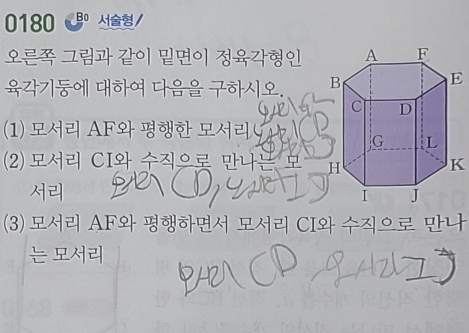 0180 B0 서술형
오른쪽 그림과 같이 밑면이 정육각형인
육각기둥에 대하여 다음을 구하시오.
(1) 모서리 AF와 평행한 모서리 모서리 GL
모서리 CD
모서리 IJ
(2) 모서리 CI와 수직으로 만나는 모
서리 모서리 CD, 모서리 IJ
(3) 모서리 AF와 평행하면서 모서리 CI와 수직으로 만나
는 모서리
모서리 CD, 모서리 IJ
A F
B E
C D
G L
H K
I J